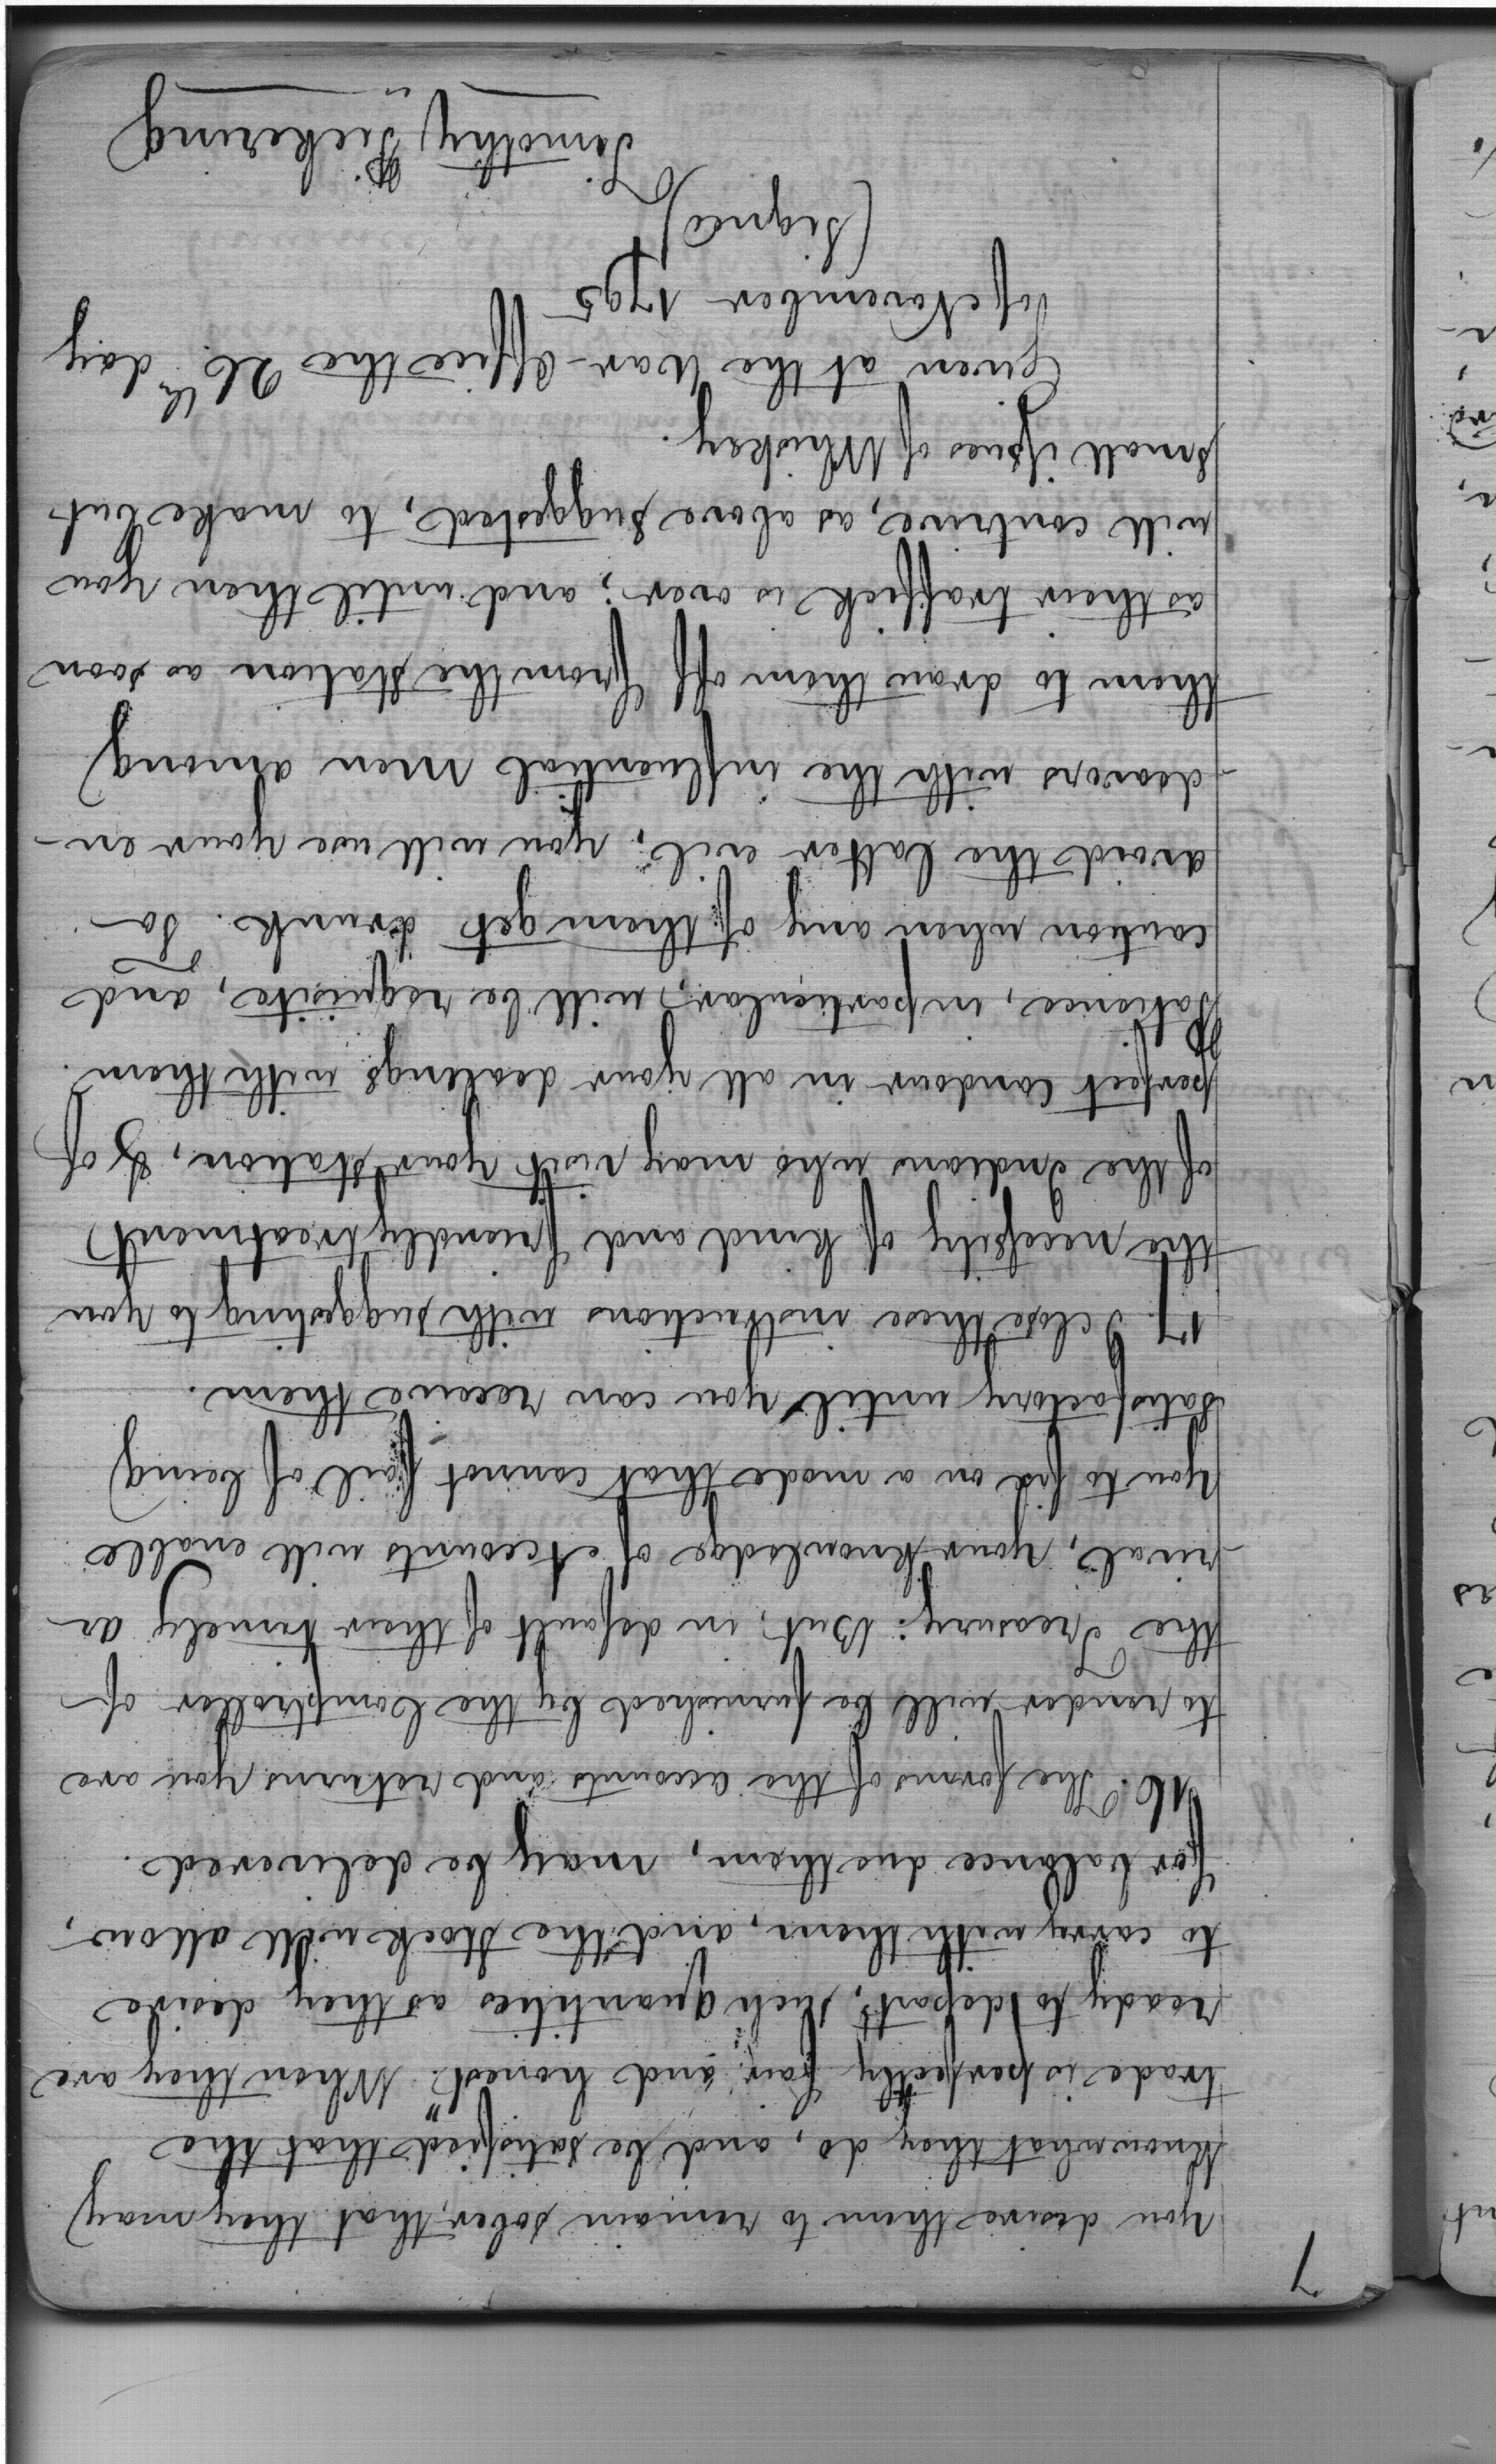 7
you desire them to remain sober, that they may
know what they do, and be satisfied that the
trade is perfectly fair and honest." When they are
ready to depart, such quantities as they desire
to carry with them, and the stock will allow,
for balance due them, may be delivered.
16. The forms of the accounts and returns you are
to render will be furnished by the Comptroller of
the Treasury: But, in default of their timely ar
-rival, your knowledge of Accounts will enable
you to fix on a mode that cannot fail of being
satisfactory until you can receive them.
17 I close these instructions with suggesting to you
the necessity of kind and friendly treatment
of the Indians who may visit your station, & of
perfect candour in all your dealings with them.
Patience, in particular, will be requisite, and
caution when any of them get drunk. To
avoid the latter evil, you will use your en-
-deavors with the influential men among
them to draw them off from the station as soon
as their traffick is over; and until then you
will contrive, as above suggested, to make but
small issues of Whiskey.
Given at the War-Office the 26th. day
of November 1795
(signed)
Timothy Pickering